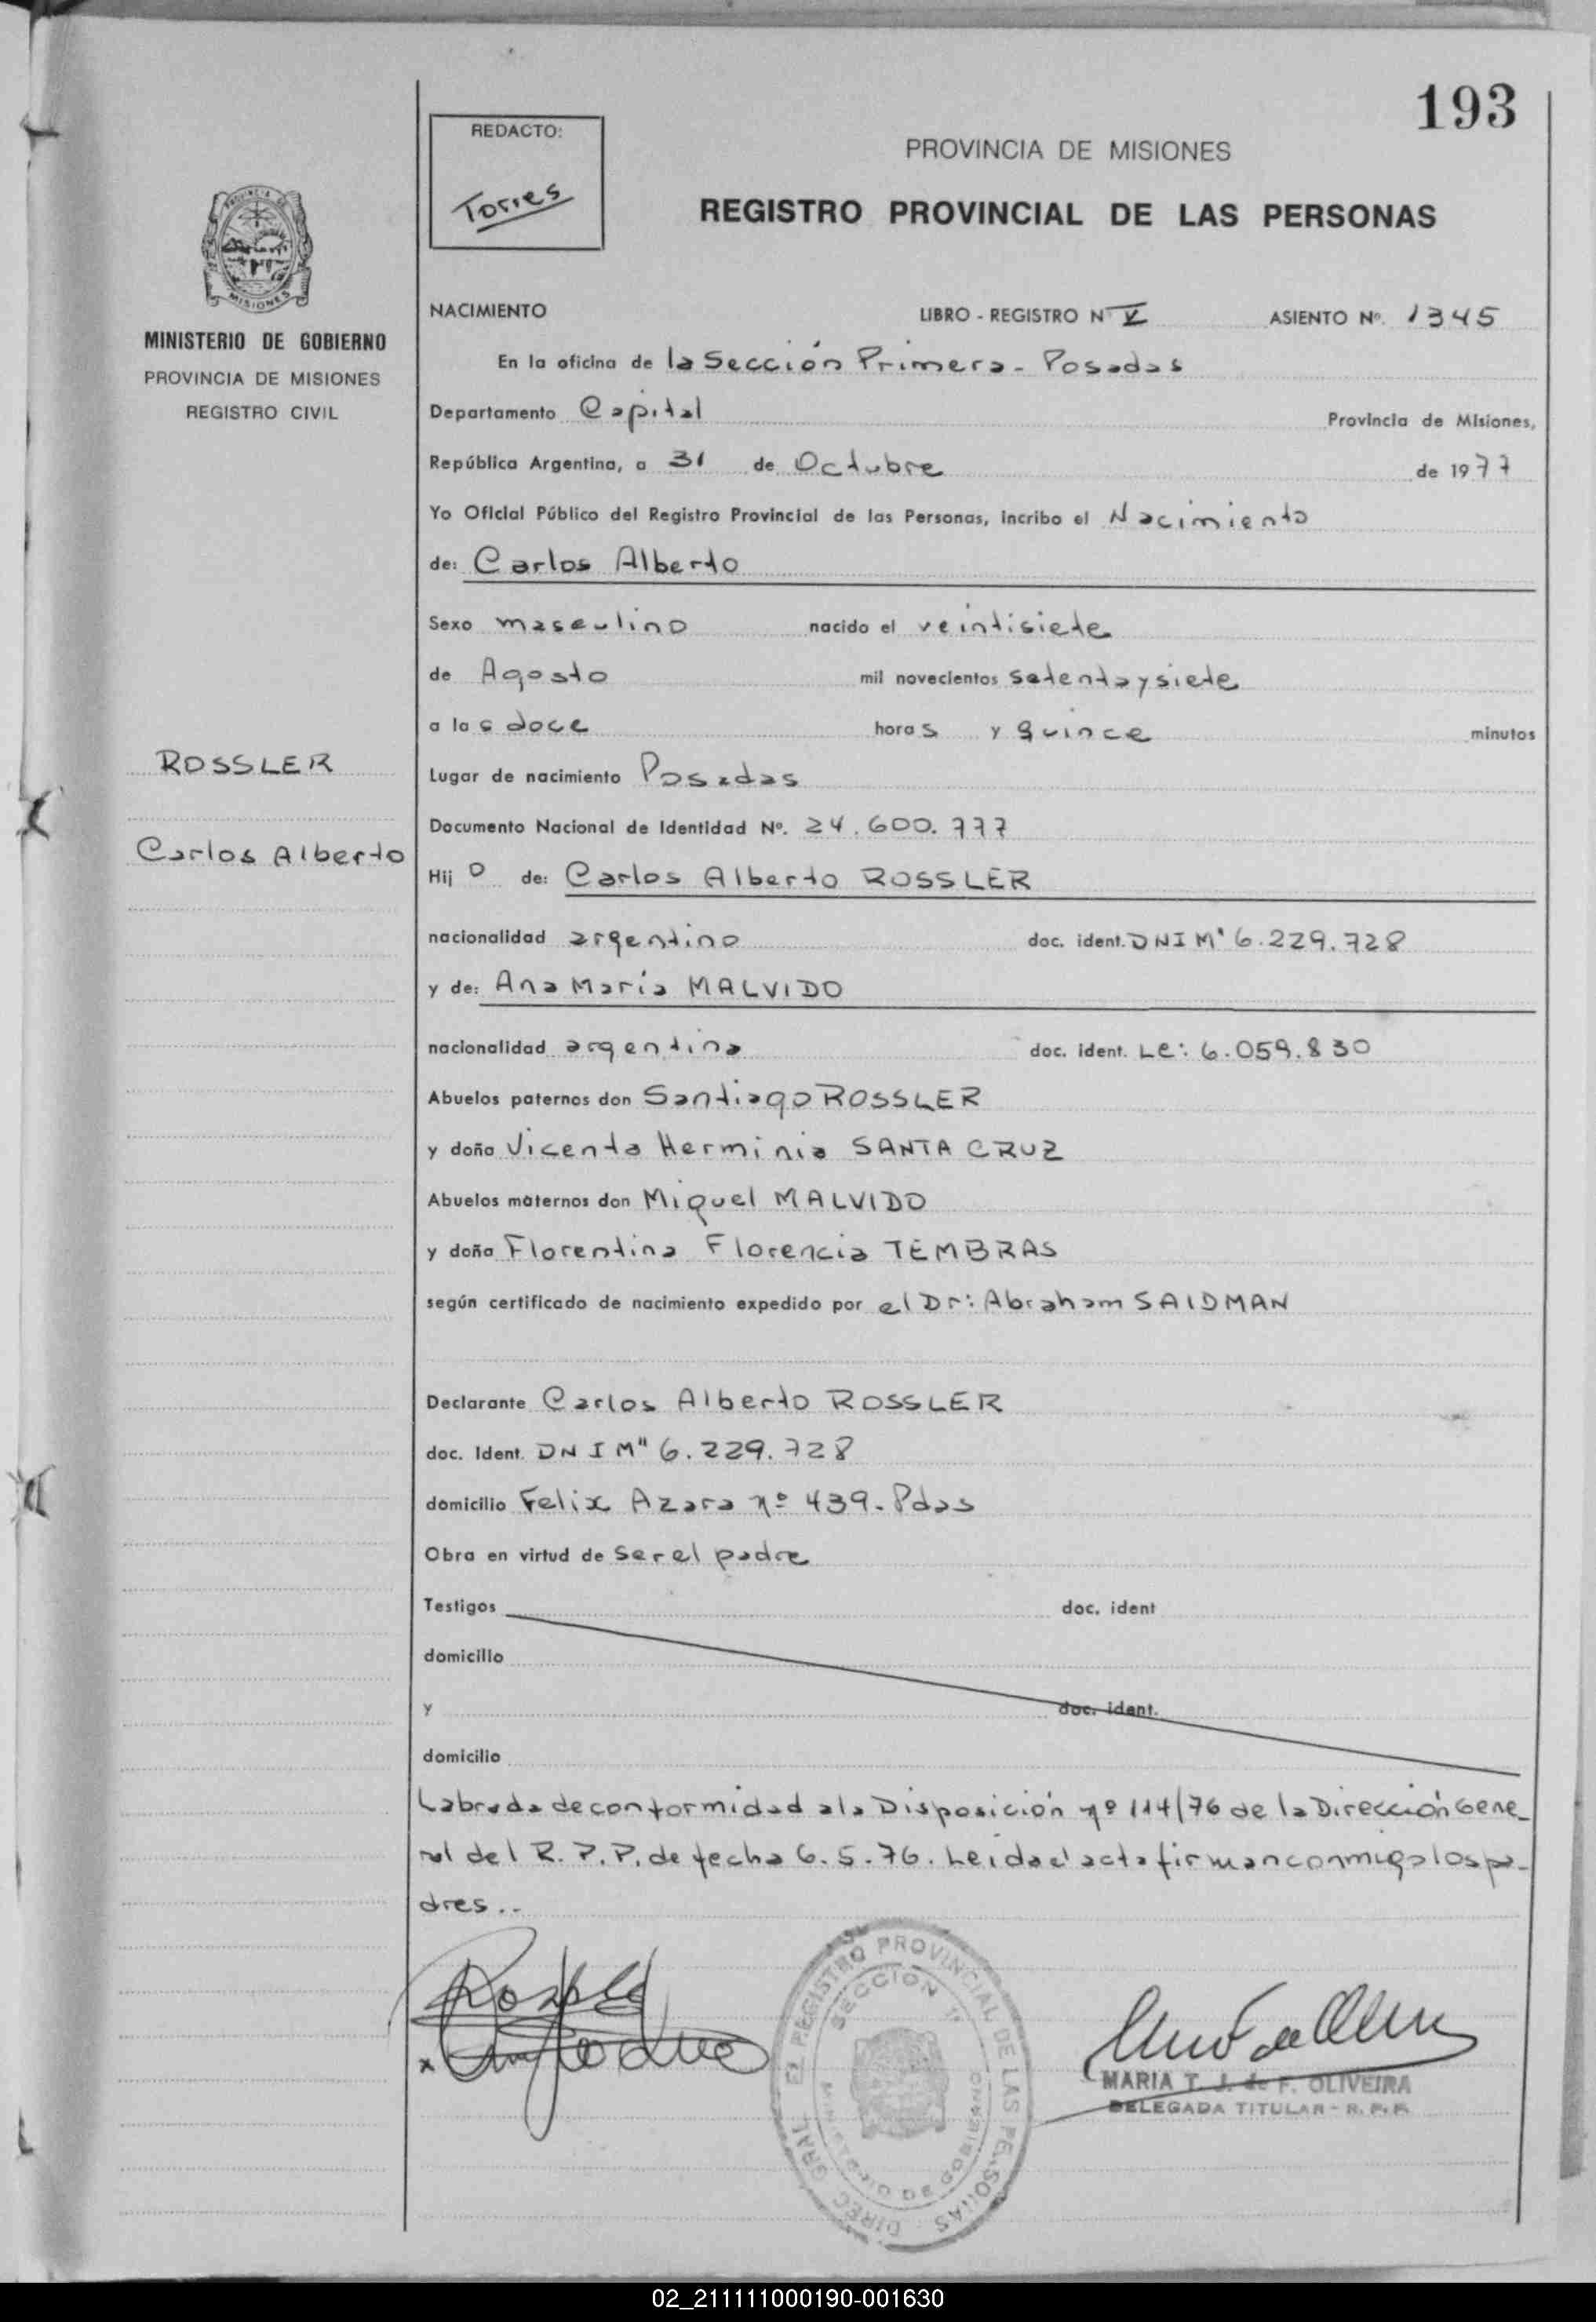 193
REDACTO:
Torres
PROVINCIA DE MISIONES
REGISTRO PROVINCIAL DE LAS PERSONAS
MISIONES
MINISTERIO DE GOBIERNO
PROVINCIA DE MISIONES
REGISTRO CIVIL
NACIMIENTO LIBRO - REGISTRO Nº V ASIENTO Nº. 1345
En la oficina de la Sección Primera - Posadas
Departamento Capital Provincia de Misiones,
República Argentina, a 31 de Octubre de 1977
Yo Oficial Público del Registro Provincial de las Personas, incribo el Nacimiento
de: Carlos Alberto
Sexo masculino nacido el veintisiete
de Agosto mil novecientos setenta y siete
a las doce horas y quince minutos
ROSSLER
Carlos Alberto
Lugar de nacimiento Posadas
Documento Nacional de Identidad Nº. 24.600.777
Hijo de: Carlos Alberto ROSSLER
nacionalidad argentino doc. ident. DNI M" 6.229.728
y de: Ana María MALVIDO
nacionalidad argentina doc. ident. Lc: 6.059.830
Abuelos paternos don Santiago ROSSLER
y doña Vicenta Herminia SANTA CRUZ
Abuelos maternos don Miguel MALVIDO
y doña Florentina Florencia TEMBRAS
según certificado de nacimiento expedido por el Dr: Abraham SAIDMAN
Declarante Carlos Alberto ROSSLER
doc. Ident. DNI M" 6.229.728
domicilio Felix Azara nº 439 - Pdas
Obra en virtud de ser el padre
Testigos doc. ident
domicilio
y doc. ident.
domicilio
Labrada de conformidad a la Disposición nº 114/76 de la Dirección Gene_
ral del R. P. P. de fecha 6.5.76. Leída el acta firman conmigo los pa_
dres..
DIREC. GRAL. EL REGISTRO PROVINCIAL DE LAS PERSONAS
SECCION 1ª
MINISTERIO DE GOBIERNO
MARIA T. J. de F. OLIVEIRA
DELEGADA TITULAR - R. P. P.
02_211111000190-001630